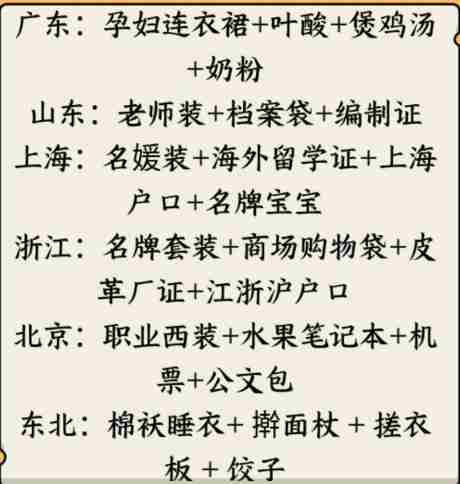 广东：孕妇连衣裙+叶酸+煲鸡汤
+奶粉
山东：老师装+档案袋+编制证
上海：名媛装+海外留学证+上海
户口+名牌宝宝
浙江：名牌套装+商场购物袋+皮
革厂证+江浙沪户口
北京：职业西装+水果笔记本+机
票+公文包
东北：棉袄睡衣+擀面杖+搓衣
板+饺子